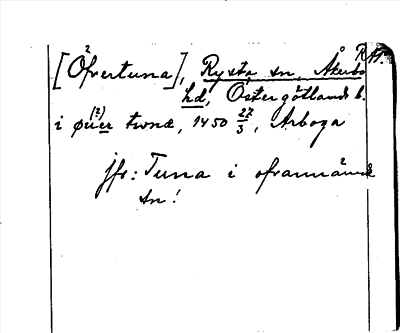 RAp.
[Öfvertuna], Rysta sn, Åkerbo
hd, Östergötlands l.
i øuer twnæ, 1450 27/3, Arboga
(?)
jfr: Tuna i ofvannämnda
sn!